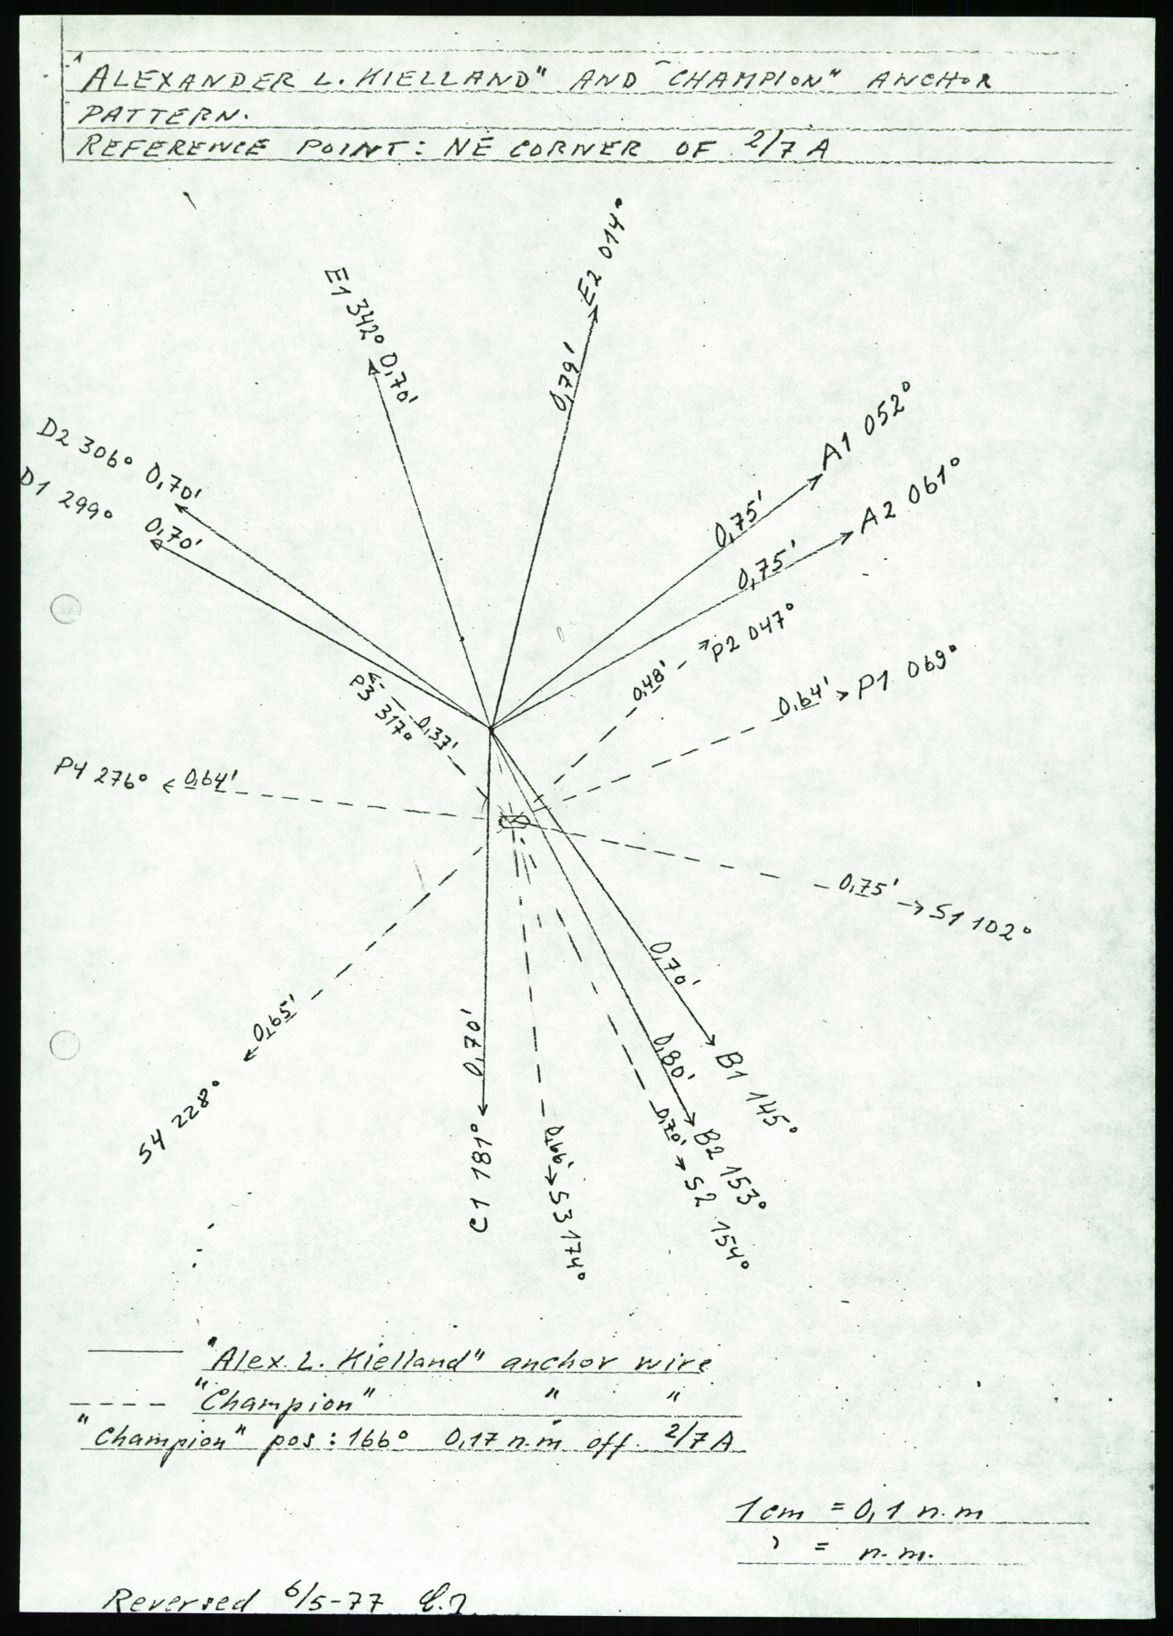 "ALEXANDER L. KIELLAND" AND "CHAMPION" ANCHOR
PATTERN.
REFERENCE POINT: NE CORNER OF 2/7 A
E2 014°
0,79'
E1 342° 0,70'
A1 052°
0,75'
D2 306° 0,70'
D1 299° 0,70'
A2 061°
0,75'
P2 047°
0,48'
P1 069°
0,64'
P3 317°
0,37'
P4 276° 0,64'
0,75' S1 102°
0,70'
B1 145°
0,80'
B2 153°
0,65'
S4 228°
0,70'
C1 181°
0,66'
S3 174°
0,70'
S2 154°
"Alex. L. Kielland" anchor wire
"Champion" " "
"Champion" pos: 166° 0,17 n.m off. 2/7 A
1 cm = 0,1 n.m
' = n.m.
Reversed 6/5-77